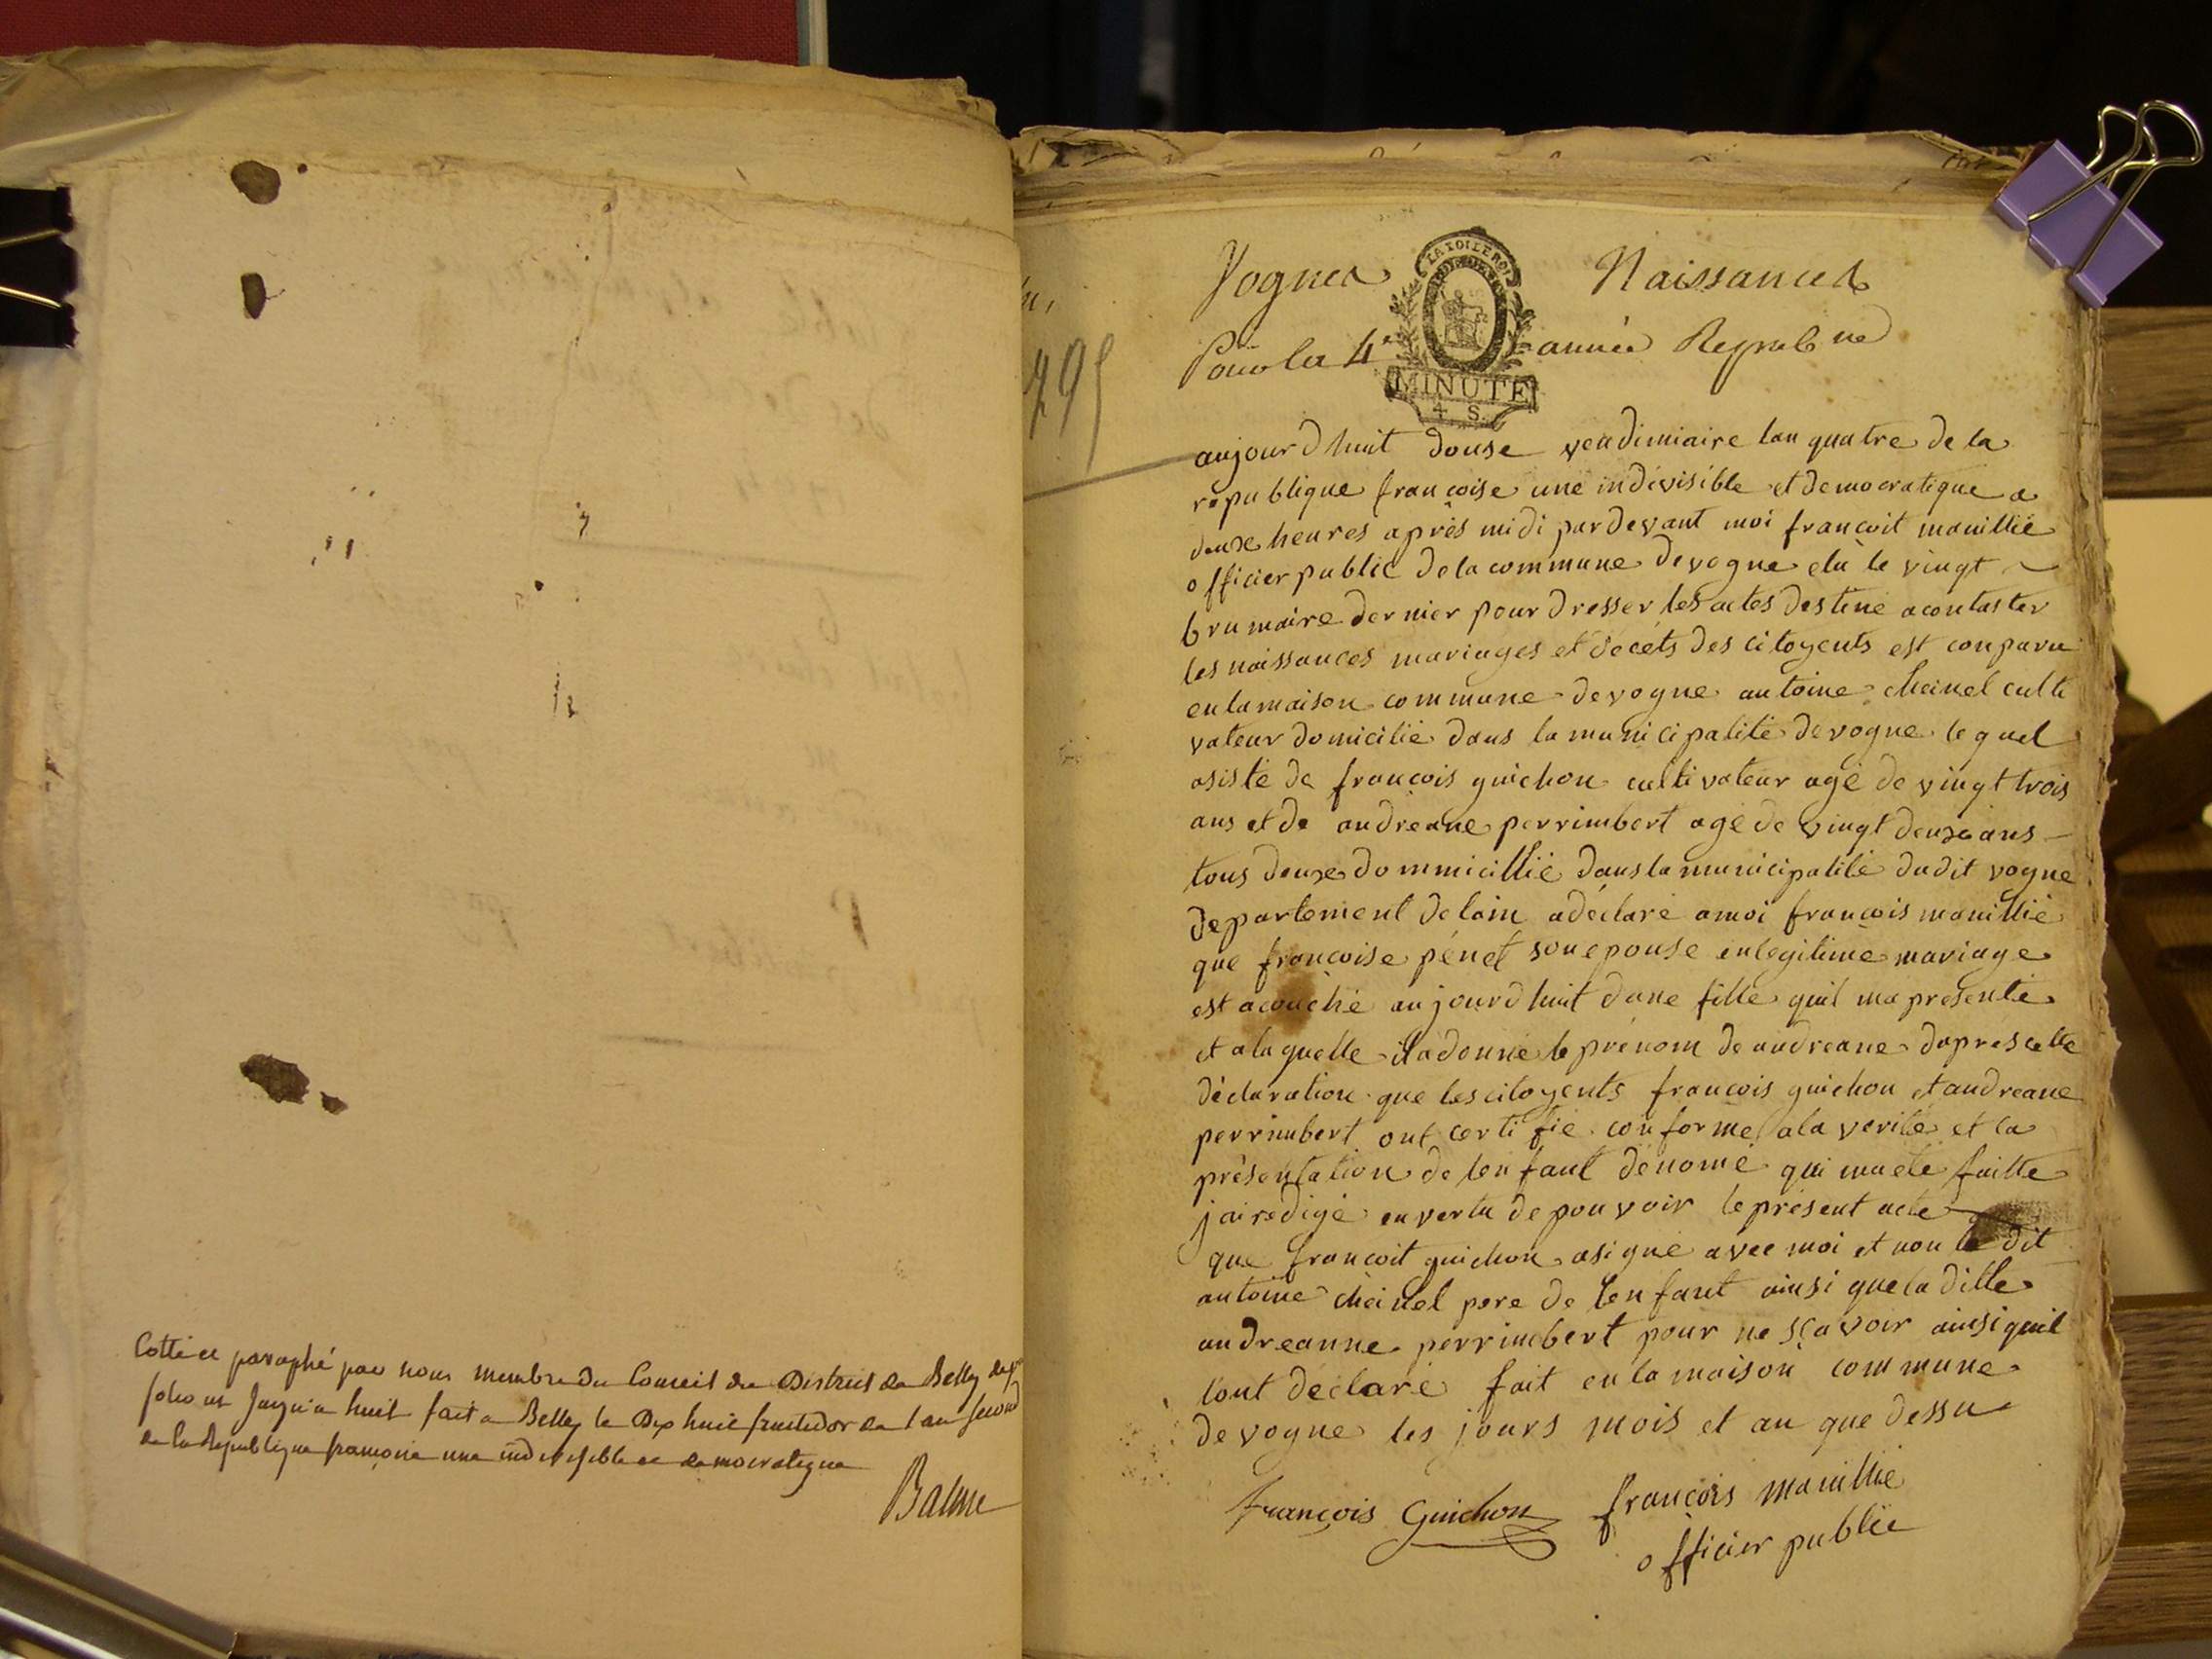 Cotté et paraphé par nous membre du Conseil du District de Belley
folio un jusqu'a huit fait a Belley le Dix huit fructidor de l'an second
de la Republique françoise une indivisible et democratique
Balme
795
Vognes Naissances
LA LOI LE ROI
Pour la 4e année Repub ne
MINUTE
4 S.
aujourdhuit douse vendimiaire lan quatre de la
republique françoise une indivisible et democratique a
deuxe heures après midi pardevant moi françoit manillié
officier public de la commune de vogne elu le vingt
brumaire dernier pour dresser les actes destiné a contaster
les naissances mariages et décéts des citoyents est conparu
en la maison commune de vogne antoine cheinel culti
vateur domicilié dans la municipalité de vogne le quel
asisté de françois guichon cultivateur agé de vingt trois
ans et de andréane perrimbert agé de vingt deuxe ans
tous deuxe dommicillié dans la municipalité dudit vogne
departement de lain a déclaré a moi françois manillié
que françoise pénet son epouse en legitime mariage
est acouché aujourdhuit dune fille quil ma presenté
et a la quelle il a donné le prénom de andreane dapres cette
déclaration que les citoyents françois guichon et andreane
perrimbert ont certifié conforme a la verité et la
présentation de lenfant dénomé qui ma été faitte
jai redigé en vertu de pouvoir le présent acte
que françoit guichon a signé avec moi et non le dit
antoine cheinel pere de lenfant ainsi que la ditte
andreanne perrimbert pour ne sçavoir ainsi quil
lont déclaré fait en la maison commune
de vogne les jours mois et an que dessu
françois Guichon françois manillié
officier public